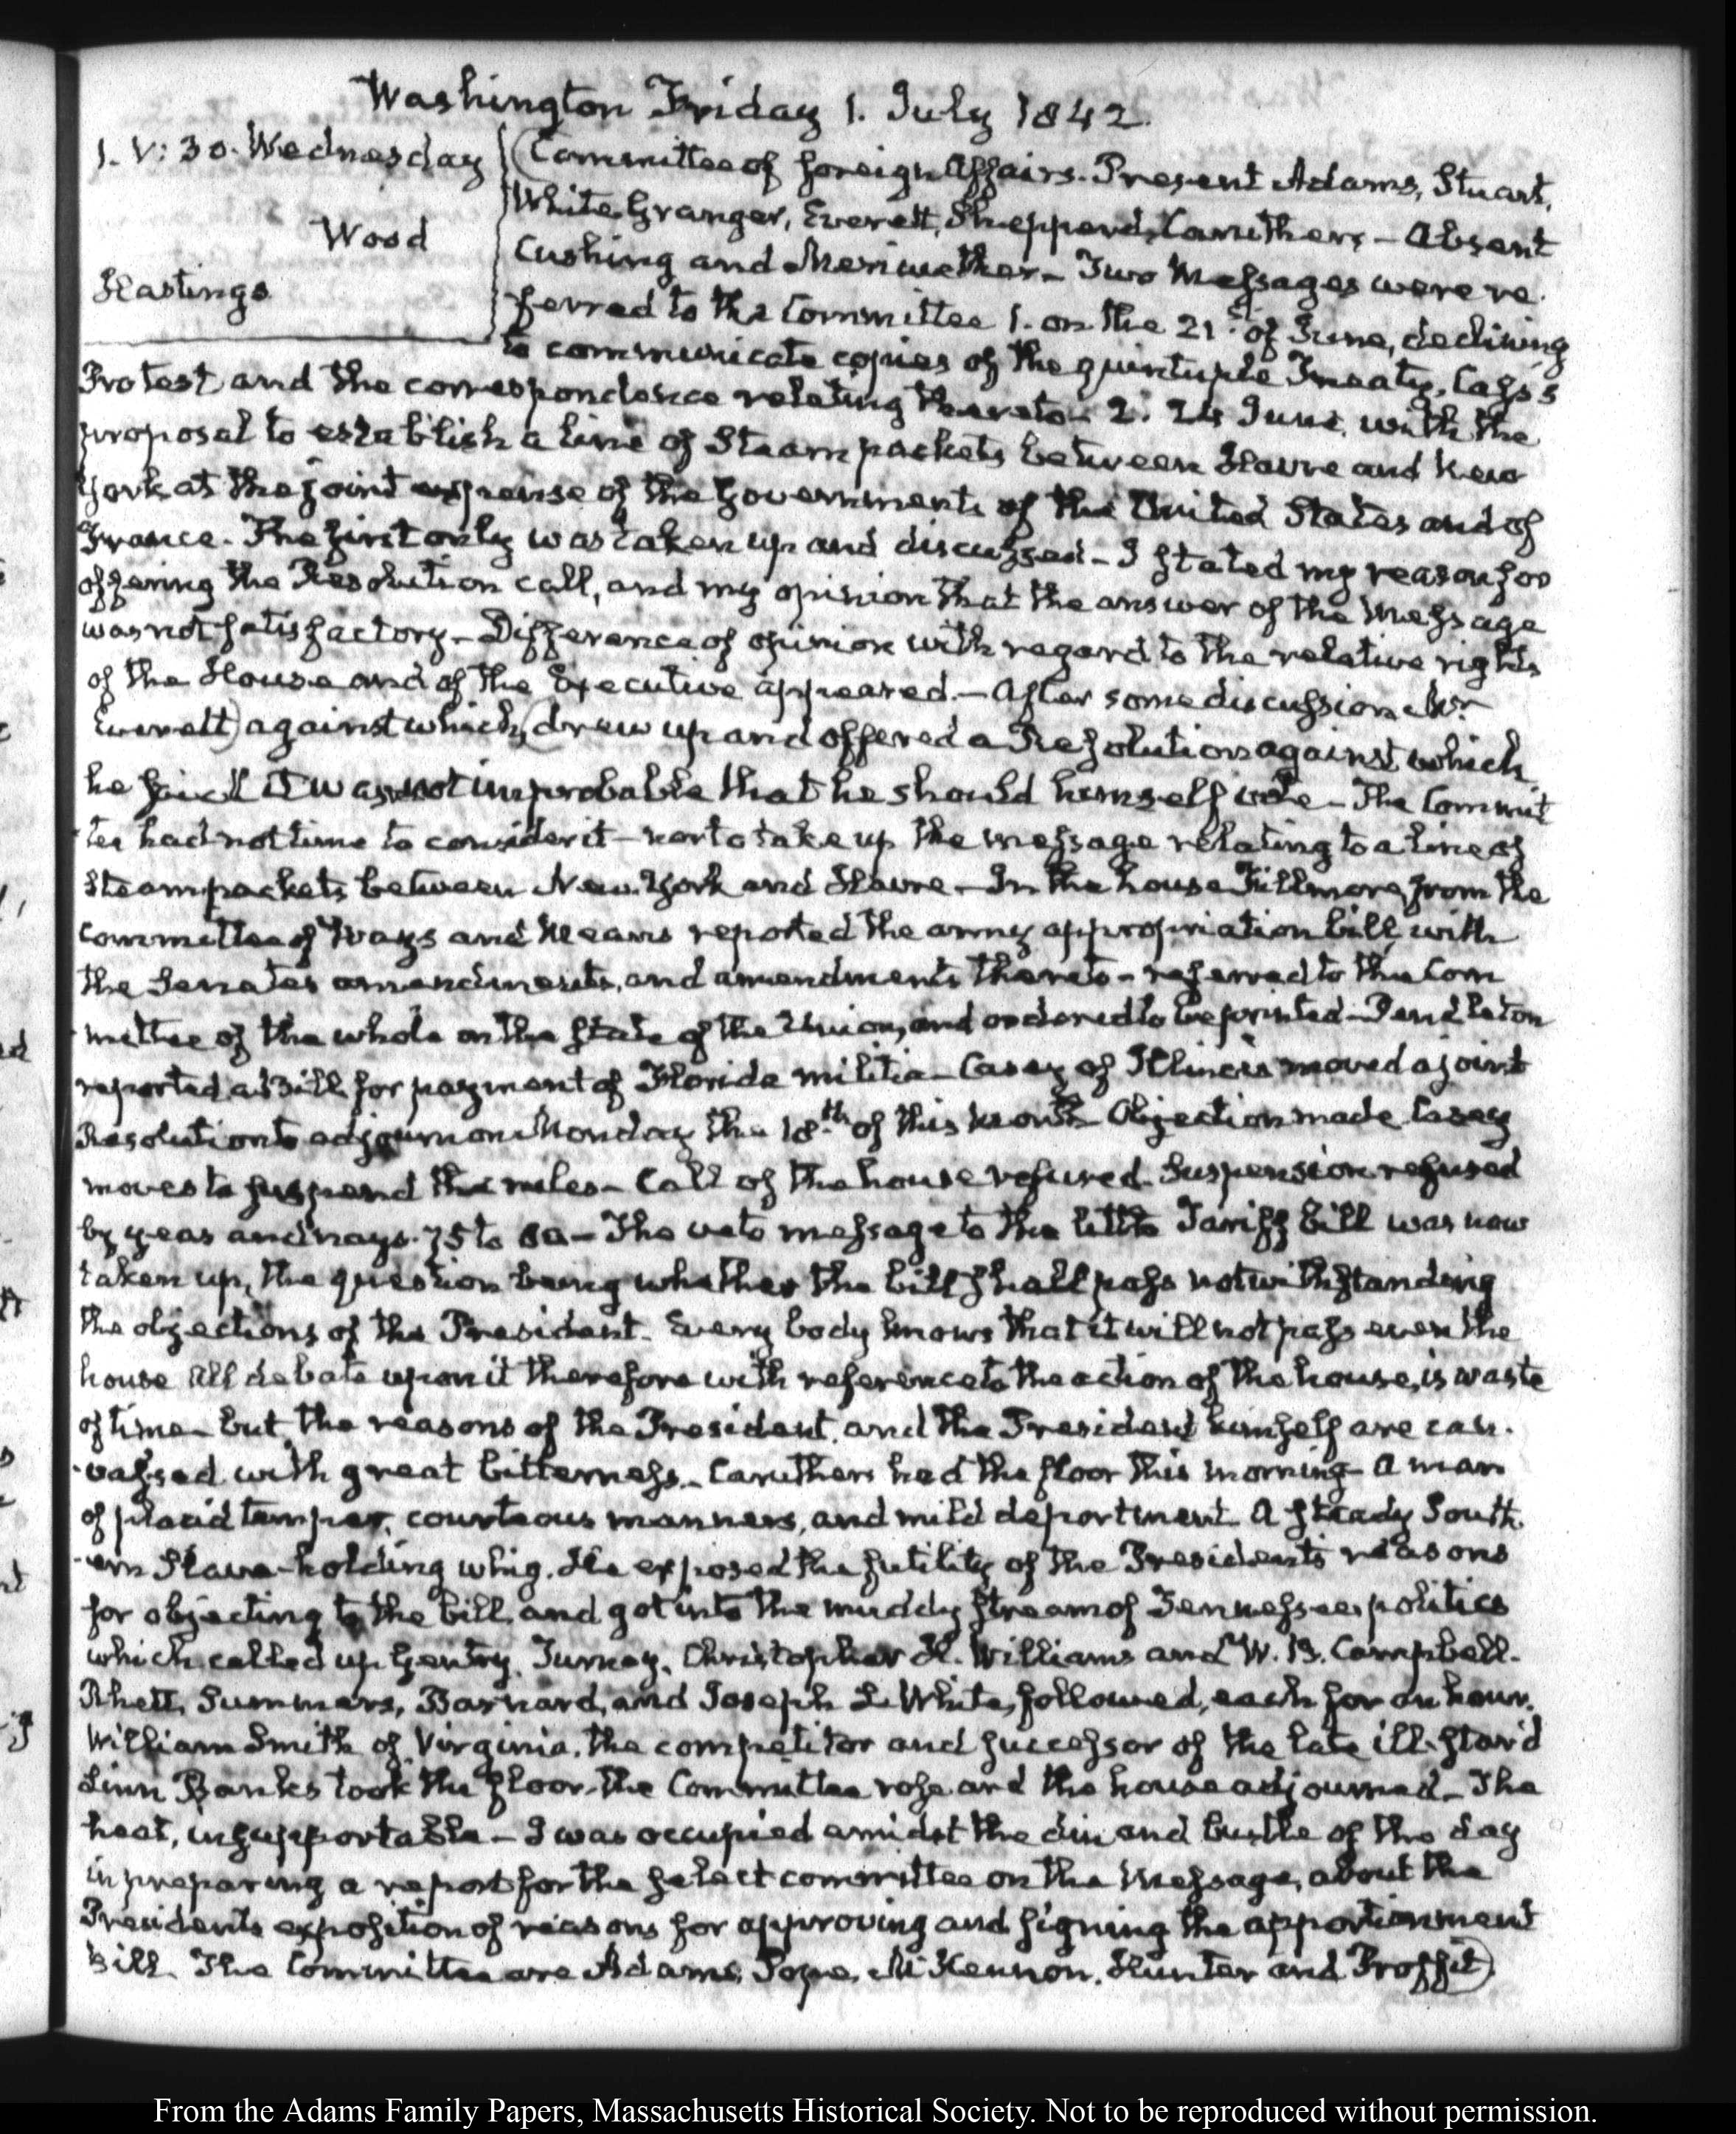 Washington Friday 1. July 1842.
1. V: 30. Wednesday
Wood
Hastings
(Committee of foreign Affairs. Present Adams, Stuart,
White, Granger, Everett, Shepperd, Caruthers, — Absent
Cushing and Meriwether — Two Messages were re-
ferred to the Committee 1. on the 21st of June, declining
to communicate copies of the quintuple Treaty, Cass's
Protest and the correspondence relating thereto — 2. 24 June with the
proposal to establish a line of Steam packets between Havre and New
York at the joint expense of the Governments of the United States and of
France. The first only was taken up and discussed — I stated my reason for
offering the Resolution call, and my opinion that the answer of the Message
was not satisfactory — Difference of opinion with regard to the relative rights
of the House and of the Executive appeared. — After some discussion Mr
Everett) against which, (drew up and offered a Resolution against which
he said it was not improbable that he should himself vote — The Commit
tee had not time to consider it — nor to take up the message relating to a line of
Steam packets between New York and Havre — In the house Fillmore from the
committee of Ways and Means reported the army appropriation bill, with
the Senates amendments, and amendments thereto — referred to the Com
mittee of the whole on the State of the Union, and ordered to be printed — Pendleton
reported a Bill for payment of Florida militia — Casey of Illinois moved a joint
Resolution to adjourn on Monday the 18th of this month Objection made Casey
moves to suspend the rules — Call of the house refused. Suspension refused
by yeas and nays. 75 to — The veto message to the little Tariff bill was now
taken up, the question being whether the bill shall pass notwithstanding
the objections of the President. Every body knows that it will not pass even the
house All debate upon it therefore with reference to the action of the house, is waste
of time — but the reasons of the President, and the President himself are can-
vassed with great bitterness — Caruthers had the floor this morning — A man
of placid temper, courteous manners, and mild deportment A steady South-
ern Slave-holding whig. He exposed the futility of the Presidents reasons
for objecting to the bill, and got into the muddy stream of Tennessee politics
which called up Gentry, Turney, Christopher H. Williams and W. B. Campbell.
Rhett, Summers, Barnard, and Joseph L. White, followed, each for an hour.
William Smith of Virginia, the competitor and successor of the late ill-star'd
Linn Banks took the floor the Committee rose and the house adjourned — The
heat, insupportable — I was occupied amidst the din and bustle of the day
in preparing a report for the select committee on the Message, about the
Presidents exposition of reasons for approving and signing the apportionment
bill. The Committee are Adams, Pope, McKennon, Hunter and Proffit).
From the Adams Family Papers, Massachusetts Historical Society. Not to be reproduced without permission.